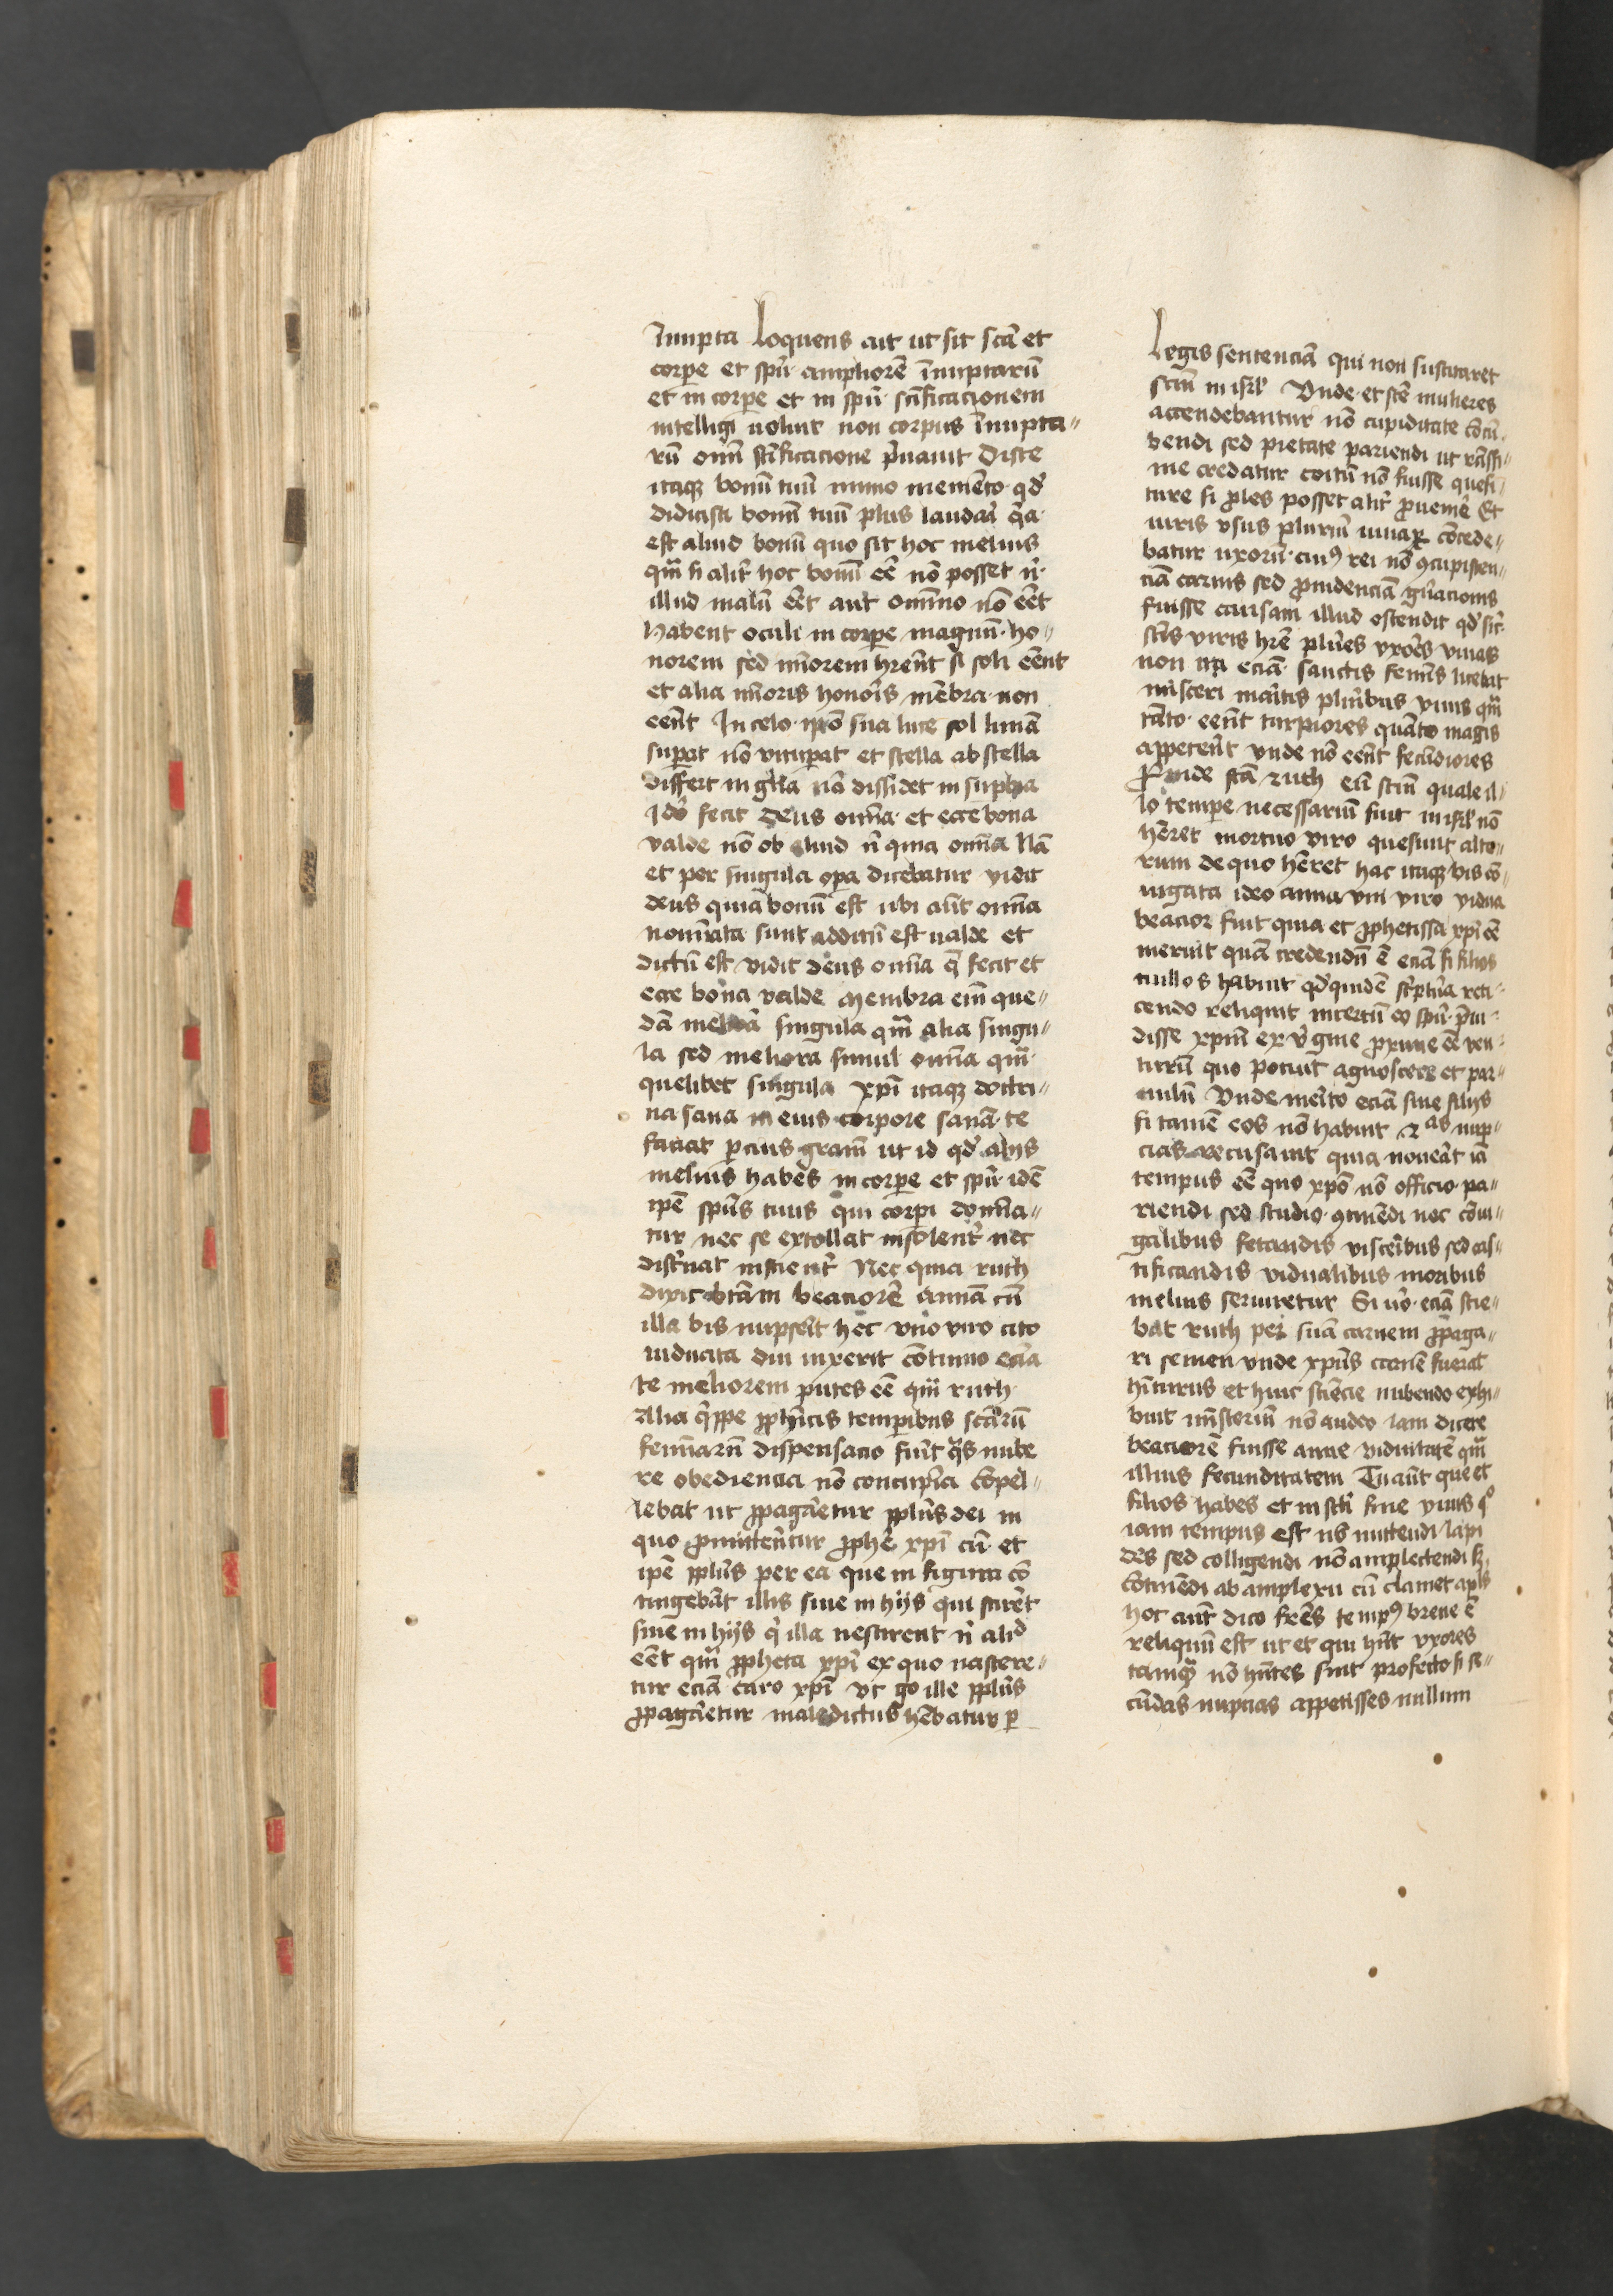 Jnnupta Loquens ait ut sit scā et
corpe et spū ampliorē īnuptarū
et in corpe et in spū scīficacionem
intelligi uoluit non corpus īnupta-
rū omī scīficacione pͥuauit Disce
itaqꝫ bonū tuū ymmo memēto qd̕
didicisti bonū tuū plus laudaͥ qͥa
est aliud bonū quo sit hoc melius
qm̄ si alit̕ hoc bonū eē nō posset nͥ
illud malū eēt aut omīno nō eēt
Habent oculi in corpe magnū ho-
norem sed mīorem hrēnt si soli eēnt
et alia mīoris honoͥs mēbra non
eēnt In celo ipō sua luce sol lunā
supat nō vitupat et stella ab stella
differt in gl̄ia nō dissidet in supbia
Jdō fecit deus omīa et ecce bona
valde nō ob aliud nͥ quia omīa Nā
et per singula opa dicebatur vidit
deus quia bonū est ubi aūt omīa
nomīata sunt additū est ualde et
dictū est vidit deus omīa q̄ fecit et
ecce bona valde Membra eīm que-
dā singula qm̄ alia singu-
la sed meliora simul omīa qm̄
quelibet singula xpī itaqꝫ doctri-
na sana in eius corpore sanā te
faciat p cius gram̄ ut id qd̕ alijs
melius habes in corpe et spū idē
ipē spūs tuus qui corpi domīa-
tur nec se extollat insolent̕ nec
disc̕nat inscient̕ Nec quia ruth
dixit btām beatiorē Annā cū
illa bis nupserīt hec vno viro cito
uiduata diu uixerit cōtinuo ecīa
te meliorem putes eē qm̄ ruth
Alia qͥppe ꝓphīcis tempibus scārū
femīarū dispensacio fuit qͣs nube
re obediencia nō concupīa cōpel-
lebat ut ꝓpagaretur ppl̄us dei in
quo ꝓmittent̕ur ꝓphē xpī cū et
ipē ppl̄us per ea que in figura cō
tingebāt illis siue in hijs qui scirēt
siue in hijs qͥ illa nescirent nͥ aliͩ
eēt qm̄ ꝓpheta xpī ex quo nascere-
tur ecīa caro xpī Vt go ille ppl̄us
ꝓpagaretur maledictus hēbatur p
Legis sentenciā qui non suscitaret
semē in isrl̕ Vnde et scē mulieres
accendebantur nō cupiditate cōcū-
bendi sed pietate pariendi ut rcīssi-
me credatur coitū nō fuisse quesi-
ture si ꝓles posset alit̕ ꝓuenīe Et
uiris vsus plurīū uiuaꝝ cōcede-
batur uxorū cuiꝰ rei nō ꝯcupiscen-
ciā carnis sed ꝓuidenciā gn̄acionis
fuisse causam illud ostendit qd̕ sic̕
scīs viris hrē plures vxores viuas
non ita eciā sanctis femīs licebat
misceri maritis plurībus viuis qm̄
tāto eēnt turpiores quāto magis
appetēnt vnde nō eēnt fecūdiores
Proinde scā ruth cū semē quale il-
lo tempe necessariū fuit in isrl̕ nō
hēret mortuo viro quesiuit alte-
rum de quo hēret hac itaqꝫ bis cō-
iugata ideo anna vni viro vidua
beatior fuit quia et ꝓphetissa xpī eē
meruit quā credendū ē eciā si filios
nullos habuit qd̕ quidē sc̕ptūa reti-
cendo reliquit incertū eo spū pͥui-
disse xpm̄ ex v̕gine ꝓxime eē ven-
turū quo potuit agnoscere et par-
uulū Vnde meīto eciā sine filijs
si tamē eos nō habuit 2ͣˢ nup-
cias recusauit quia nouerat iā
tempus eē quo xpō nō officio pa-
riendi sed studio ꝯtinēdi nec cōiu-
galibus fetandis visceribus sed cas-
tificandis vidualibus moribus
melius seruiretur Si uͦ eciā scie-
bat ruth per suā carnem ꝓpaga-
ri semen vnde xpūs carnē fuerat
hīturus et huic sciēcie nubendo exhi-
buit mīsteriū nō audeo iam dicere
beatiorē fuisse anne viduitatē qm̄
illius fecunditatem Tu aūt que et
filios habes et in scli fine viuis qͦ
iam tempus est nō mittendi lapi
des sed colligendi nō amplectendi sꝫ
cōtinēdi ab amplexu cū clamet apls
hoc aūt dico frēs tempꝰ breue ē
reliquū est ut et qui hn̄t vxores
tamqͣ nō hn̄tes sint profecto si se-
cūdas nupcias appetisses nullum